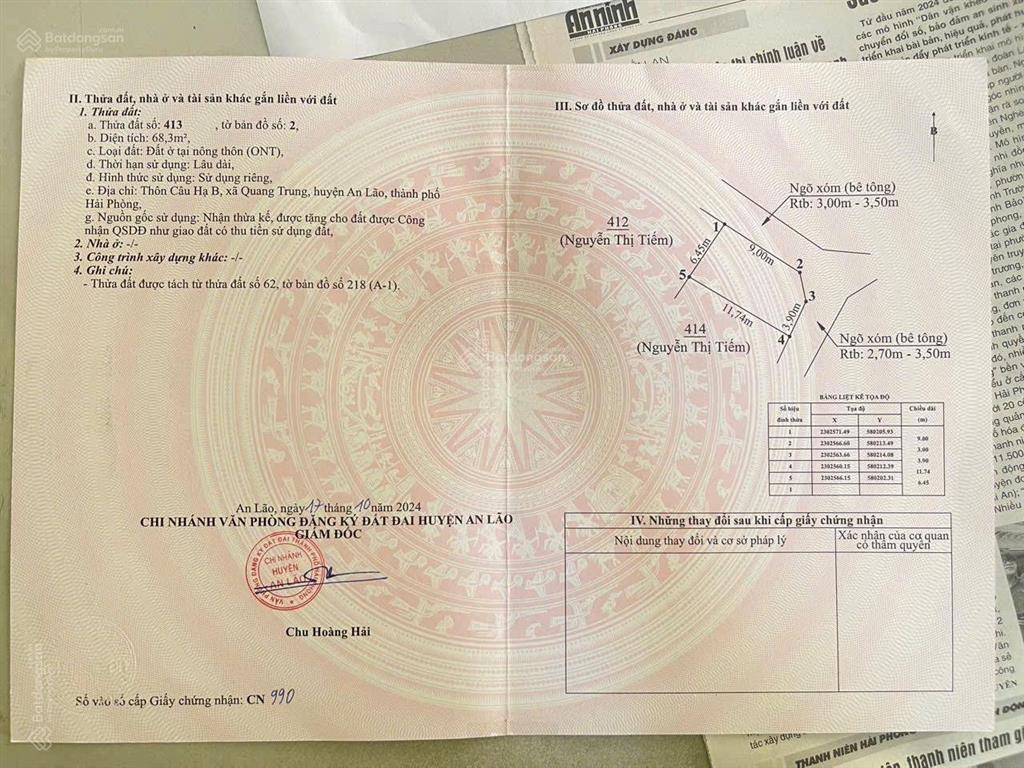 Batdongsan
by PropertyGuru
An ninh
HẢI PHÒNG
XÂY DỰNG ĐẢNG
chính luận về
Từ đầu năm 2024 đ
các mô hình "Dân vận khéo
chuyển đổi số, bảo đảm an sinh x
triển khai bài bản, hiệu quả, phát hu
đẩy phát triển kinh tế -
II. Thửa đất, nhà ở và tài sản khác gắn liền với đất
1. Thửa đất:
a. Thửa đất số: 413 , tờ bản đồ số: 2,
b. Diện tích: 68,3m²,
c. Loại đất: Đất ở tại nông thôn (ONT),
d. Thời hạn sử dụng: Lâu dài,
đ. Hình thức sử dụng: Sử dụng riêng,
e. Địa chỉ: Thôn Câu Hạ B, xã Quang Trung, huyện An Lão, thành phố
Hải Phòng,
g. Nguồn gốc sử dụng: Nhận thừa kế, được tặng cho đất được Công
nhận QSDĐ như giao đất có thu tiền sử dụng đất,
2. Nhà ở: -/-
3. Công trình xây dựng khác: -/-
4. Ghi chú:
- Thửa đất được tách từ thửa đất số 62, tờ bản đồ số 218 (A-1).
An Lão, ngày 17 tháng 10 năm 2024
CHI NHÁNH VĂN PHÒNG ĐĂNG KÝ ĐẤT ĐAI HUYỆN AN LÃO
GIÁM ĐỐC
VĂN PHÒNG ĐĂNG KÝ ĐẤT ĐAI THÀNH PHỐ HẢI PHÒNG
CHI NHÁNH
HUYỆN
AN LÃO
Chu Hoàng Hải
Số vào sổ cấp Giấy chứng nhận: CN 990
III. Sơ đồ thửa đất, nhà ở và tài sản khác gắn liền với đất
B
Ngõ xóm (bê tông)
Rtb: 3,00m - 3,50m
412
(Nguyễn Thị Tiếm)
1
6,45m
9,00m
2
5
3
11,74m
3,90m
4
414
(Nguyễn Thị Tiếm)
Ngõ xóm (bê tông)
Rtb: 2,70m - 3,50m
BẢNG LIỆT KÊ TỌA ĐỘ
Số hiệu đỉnh thửa Tọa độ Chiều dài (m)
X Y
1 2302571.49 580205.93
9.00
2 2302566.60 580213.49
3.00
3 2302563.66 580214.08
3.90
4 2302560.15 580212.39
11.74
5 2302566.15 580202.31
6.45
1
IV. Những thay đổi sau khi cấp giấy chứng nhận
Nội dung thay đổi và cơ sở pháp lý
Xác nhận của cơ quan
có thẩm quyền
Batdongsan
Batdongsan
THANH NIÊN HẢI PHÒNG
thanh niên tham gi